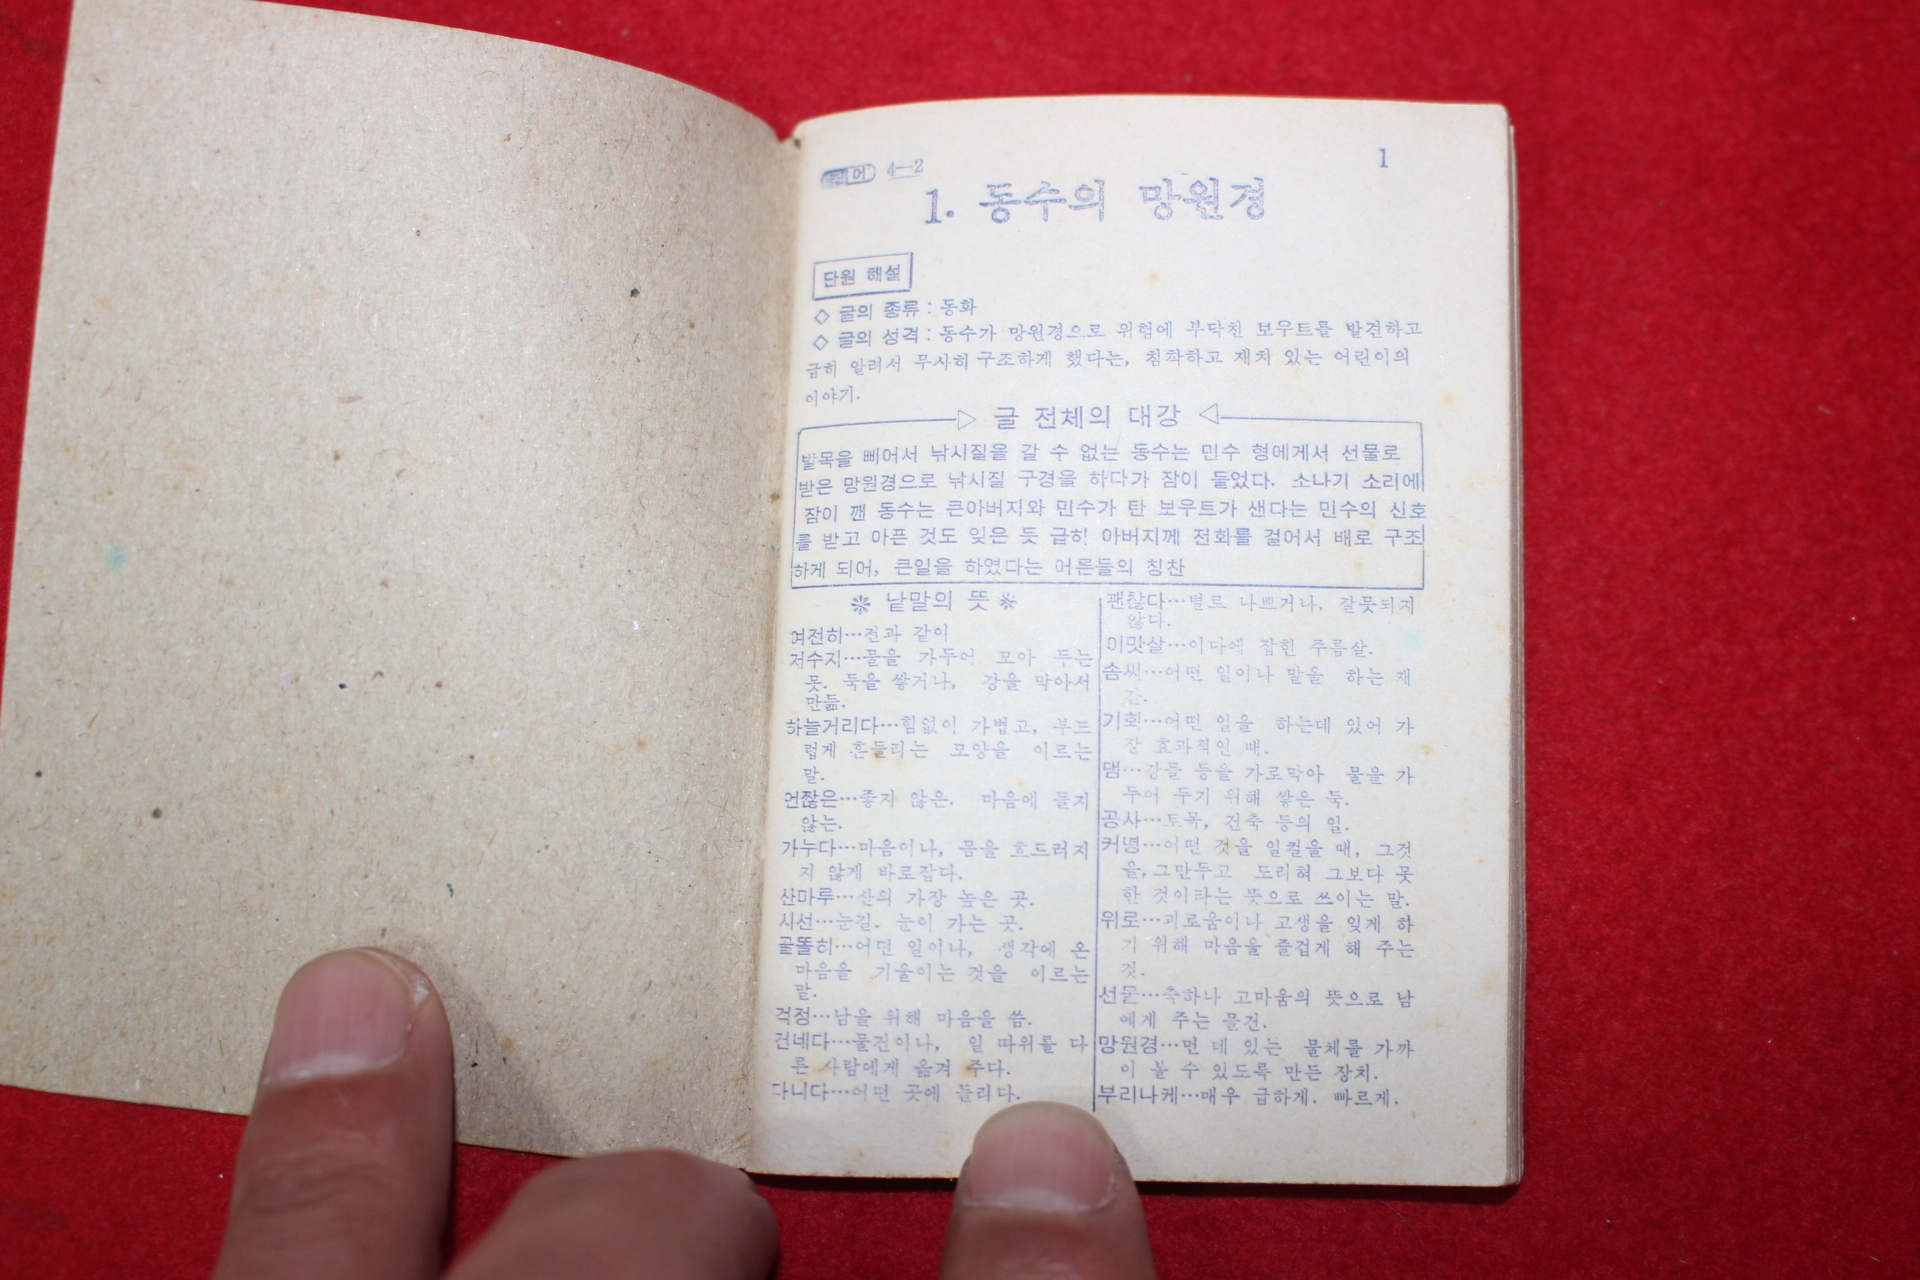 국어 4—2
1
1. 동수의 망원경
단원 해설
◇ 글의 종류 : 동화
◇ 글의 성격 : 동수가 망원경으로 위험에 부닥친 보우트를 발견하고
급히 알려서 무사히 구조하게 했다는, 침착하고 재치 있는 어린이의
이야기.
글 전체의 대강
발목을 삐어서 낚시질을 갈 수 없는 동수는 민수 형에게서 선물로
받은 망원경으로 낚시질 구경을 하다가 잠이 들었다. 소나기 소리에
잠이 깬 동수는 큰아버지와 민수가 탄 보우트가 샌다는 민수의 신호
를 받고 아픈 것도 잊은 듯 급히 아버지께 전화를 걸어서 배로 구조
하게 되어, 큰일을 하였다는 어른들의 칭찬
※ 낱말의 뜻 ※
여전히…전과 같이
저수지…물을 가두어 모아 두는
못. 둑을 쌓거나, 강을 막아서
만듦.
하늘거리다…힘없이 가볍고, 부드
럽게 흔들리는 모양을 이르는
말.
언짢은…좋지 않은. 마음에 들지
않는.
가누다…마음이나, 몸을 흐드러지
지 않게 바로잡다.
산마루…산의 가장 높은 곳.
시선…눈길. 눈이 가는 곳.
골똘히…어떤 일이나, 생각에 온
마음을 기울이는 것을 이르는
말.
걱정…남을 위해 마음을 씀.
건네다…물건이나, 일 따위를 다
른 사람에게 옮겨 주다.
다니다…어떤 곳에 들리다.
괜찮다…별로 나쁘거나, 잘못되지
않다.
이맛살…이마에 잡힌 주름살.
솜씨…어떤 일이나 말을 하는 재
간.
기회…어떤 일을 하는데 있어 가
장 효과적인 때.
댐…강들 등을 가로막아 물을 가
두어 두기 위해 쌓은 둑.
공사…토목, 건축 등의 일.
커녕…어떤 것을 일컬을 때, 그것
을, 그만두고 도리혀 그보다 못
한 것이라는 뜻으로 쓰이는 말.
위로…괴로움이나 고생을 잊게 하
기 위해 마음을 즐겁게 해 주는
것.
선물…축하나 고마움의 뜻으로 남
에게 주는 물건.
망원경…먼 데 있는 물체를 가까
이 볼 수 있도록 만든 장치.
부리나케…매우 급하게. 빠르게.